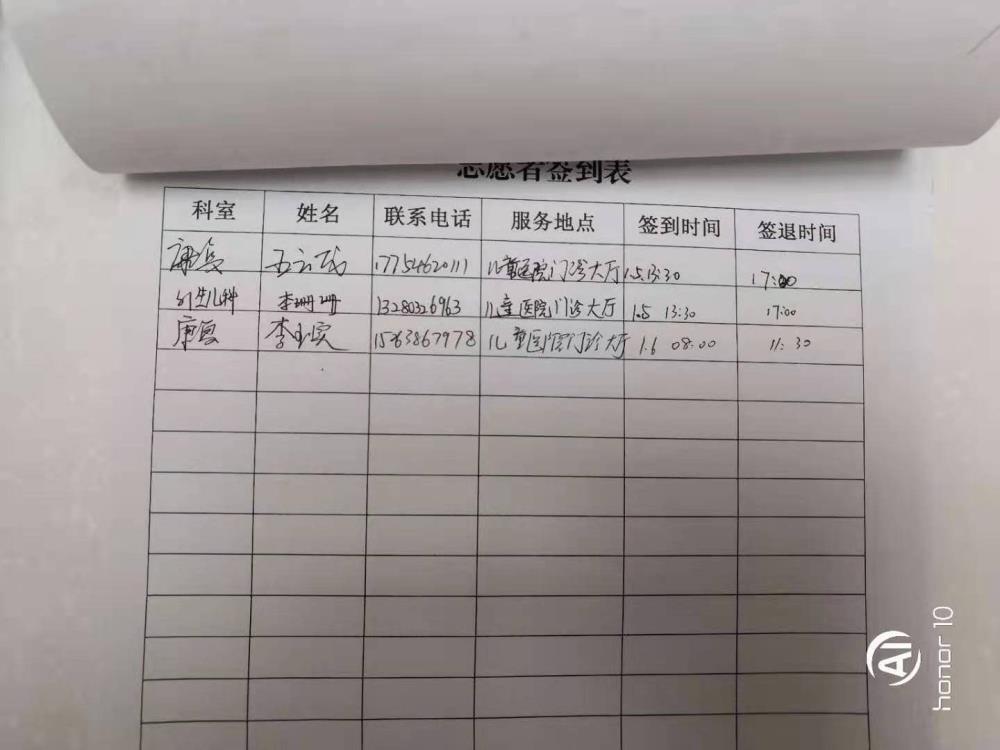 志愿者签到表
科室 姓名 联系电话 服务地点 签到时间 签退时间
康复 17754620111 儿童医院门诊大厅 1.5 13:30 17:00
李珊珊 13280326963 儿童医院门诊大厅 1.5 13:30 17:00
康复 15763867978 儿童医院门诊大厅 1.6 08:00 11:30
AI
honor 10